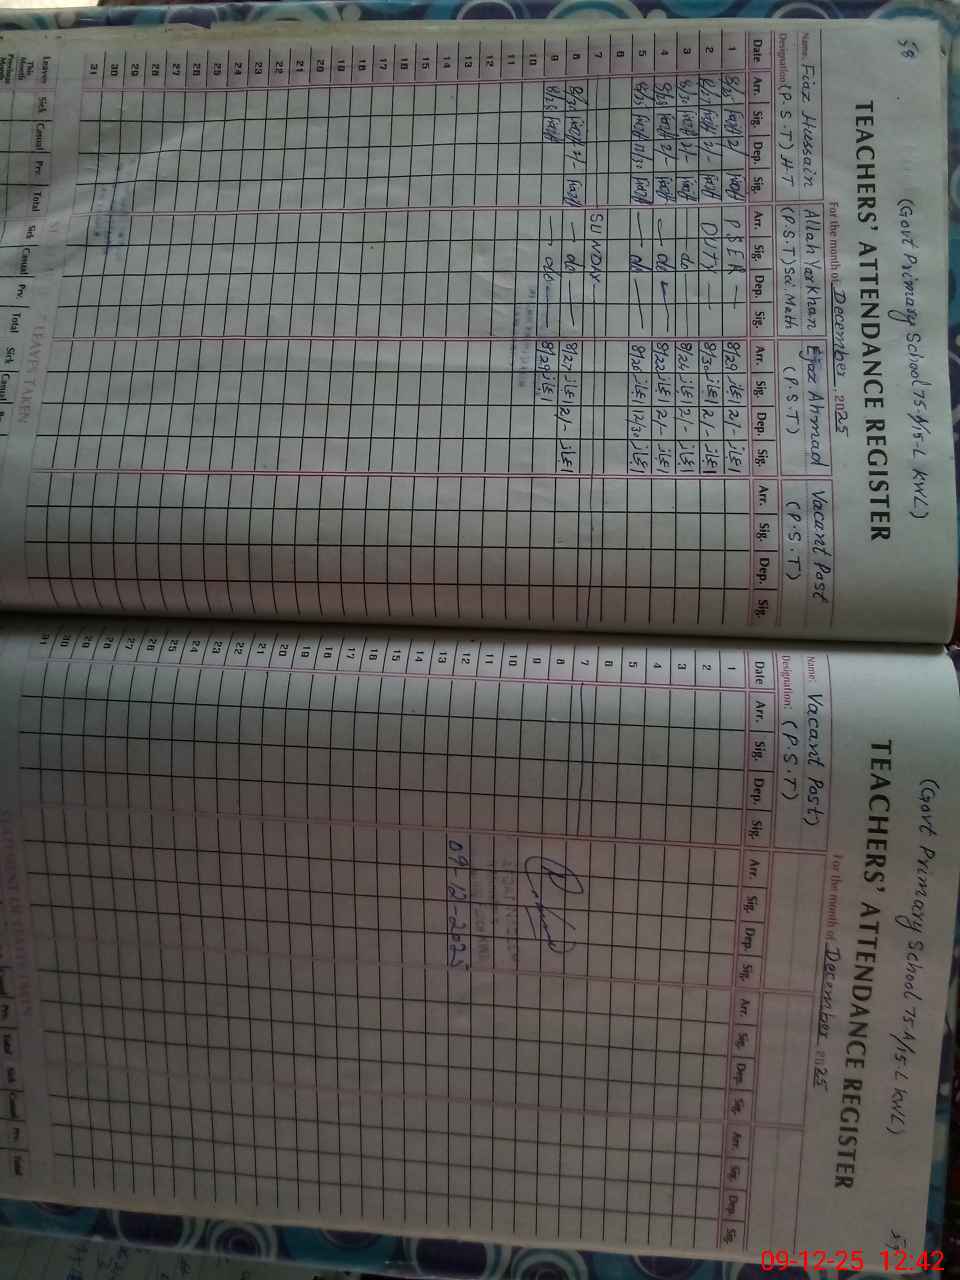 58
(Govt Primary School 75-A/15-L KWL)
TEACHERS' ATTENDANCE REGISTER
For the month of December 2025
Name: Fiaz Hussain Allah Yar Khan Ejaz Ahmad Vacant Post
Designation: (P.S.T) H-T (P.S.T) Sci. Math (P.S.T) (P.S.T)
Date Arr. Sig. Dep. Sig. Arr. Sig. Dep. Sig. Arr. Sig. Dep. Sig. Arr. Sig. Dep. Sig.
1 2/- PSER 8/29 اعجاز 2/- اعجاز
2 8/27 2/- DUTY 8/30 اعجاز 2/- اعجاز
3 8/30 2/- do 8/24 اعجاز 2/- اعجاز
4 8/28 2/- do 8/22 اعجاز 2/- اعجاز
5 12/30 do 8/26 اعجاز 12/30 اعجاز
6
7 SUNDAY
8 8/30 2/- do 8/27 اعجاز 2/- اعجاز
9 8/28 do 8/29 اعجاز
10
11
12
13
14
15
16
17
18
19
20
21
22
23
24
25
26
27
28
29
30
31
LEAVES TAKEN
Leaves Sick Casual Prv. Total Sick Casual Prv. Total Sick Casual
This Month
Previous Month
59
(Govt Primary School 75-A/15-L KWL)
TEACHERS' ATTENDANCE REGISTER
For the month of December 2025
Name: Vacant Post)
Designation: (P.S.T)
Date Arr. Sig. Dep. Sig. Arr. Sig. Dep. Sig. Arr. Sig. Dep. Sig. Arr. Sig. Dep. Sig.
1
2
3
4
5
6
7
8
9
10
11
12
13
14
15
16
17
18
19
20
21
22
23
24
25
26
27
28
29
30
31
09-12-2025
STATEMENT OF LEAVES TAKEN
Prv. Total Sick Casual Prv. Total
09-12-25 12:42